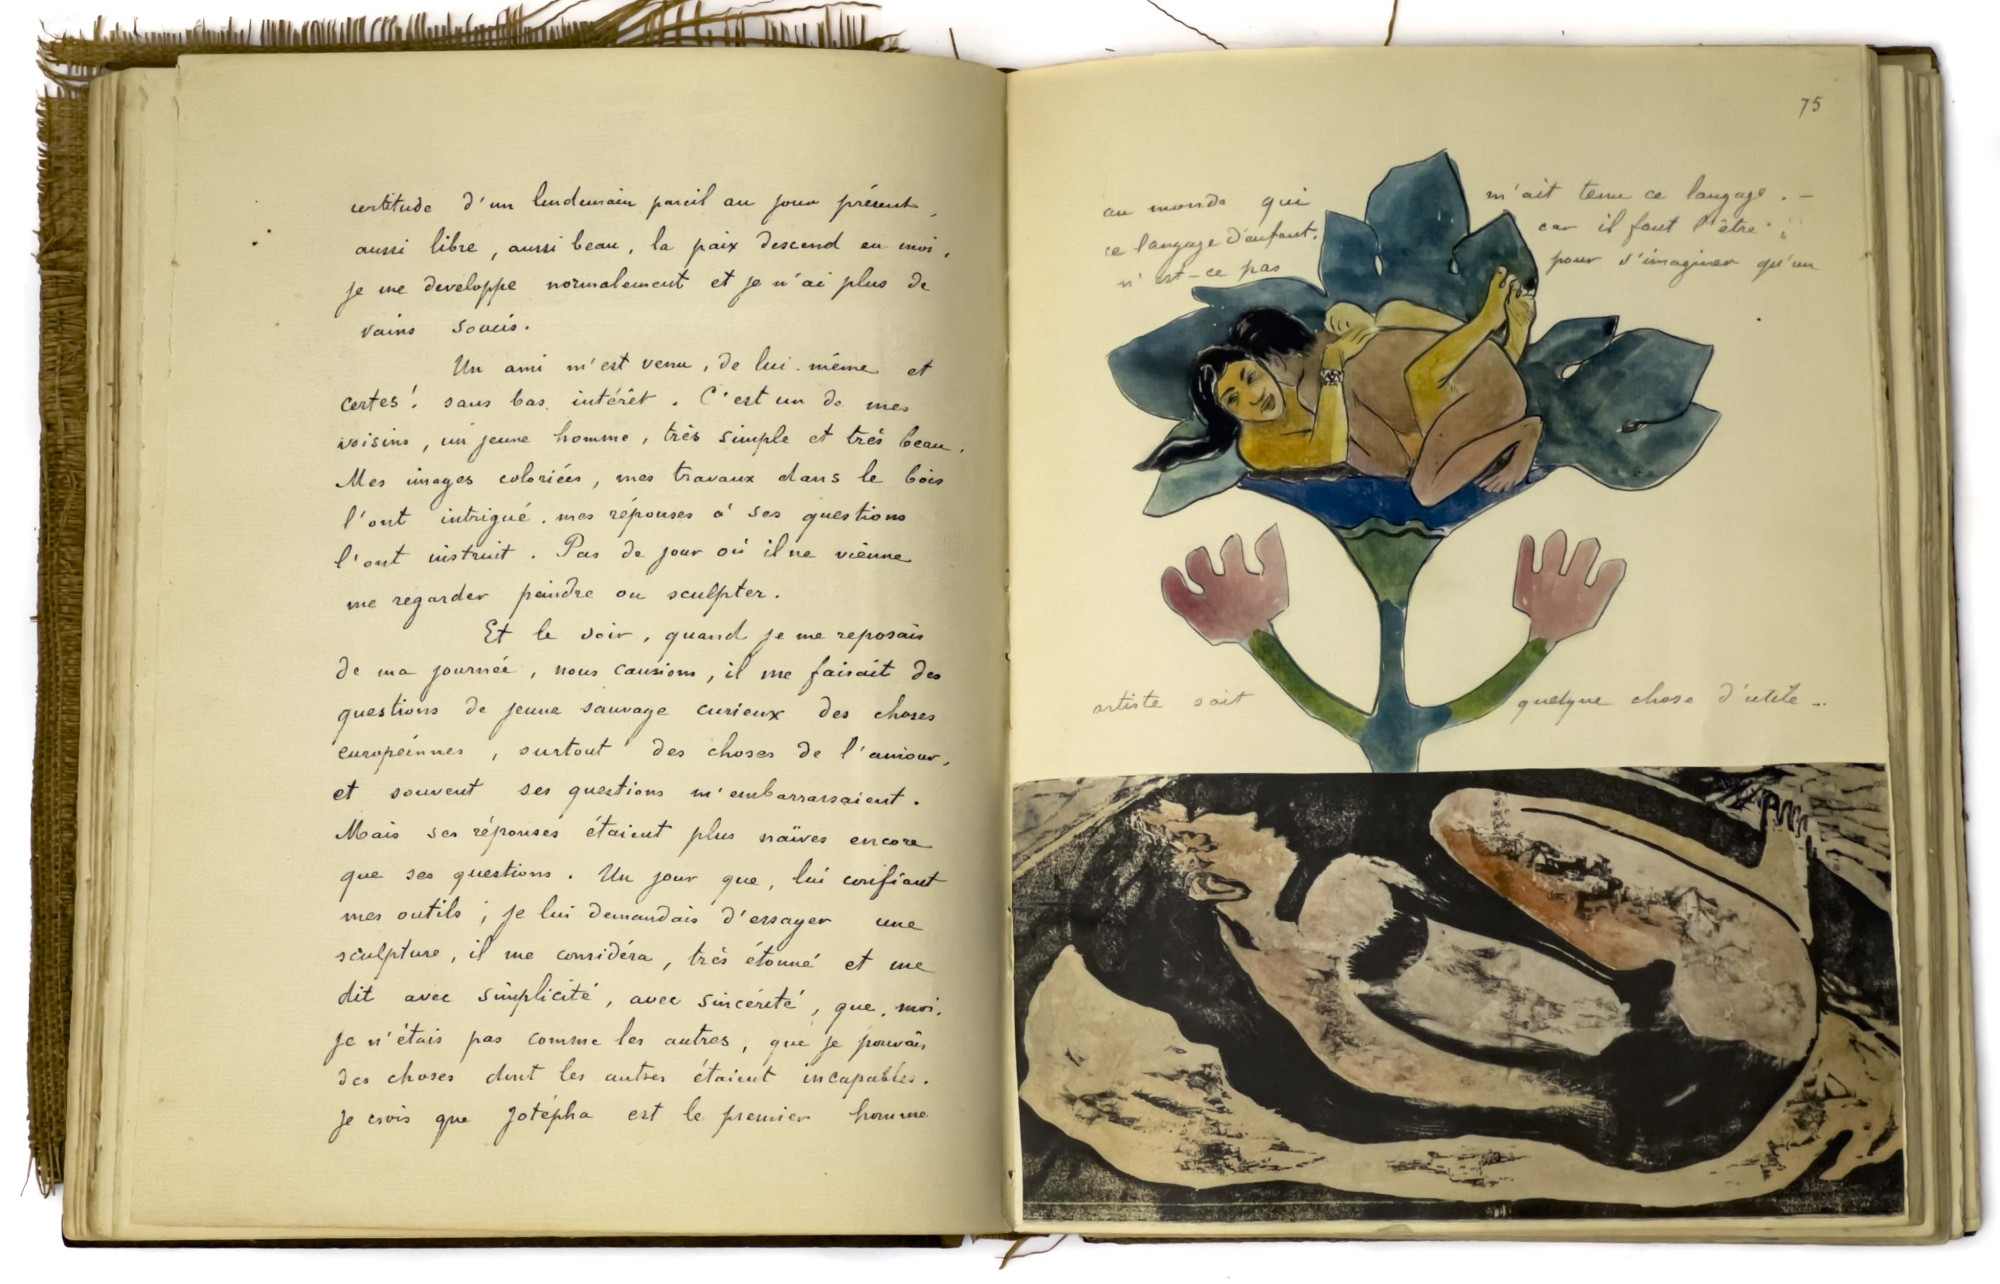 certitude d'un lendemain pareil au jour présent,
aussi libre, aussi beau, la paix descend en moi,
je me developpe normalement et je n'ai plus de
vains soucis.
Un ami m'est venu, de lui-même et
certes! sans bas intérêt. C'est un de mes
voisins, un jeune homme, très simple et très beau.
Mes images coloriées, mes travaux dans le bois
l'ont intrigué. mes réponses à ses questions
l'ont instruit. Pas de jour où il ne vienne
me regarder peindre ou sculpter.
Et le soir, quand je me reposais
de ma journée, nous causions, il me faisait des
questions de jeune sauvage curieux des choses
européennes, surtout des choses de l'amour,
et souvent ses questions m'embarrassaient.
Mais ses réponses étaient plus naïves encore
que ses questions. Un jour que, lui confiant
mes outils, je lui demandais d'essayer une
sculpture, il me considéra, très étonné et me
dit avec simplicité, avec sincérité, que, moi,
je n'étais pas comme les autres, que je pouvais
des choses dont les autres étaient incapables.
Je crois que Jotépha est le premier homme
75
au monde qui m'ait tenu ce langage. -
ce langage d'enfant. car il faut l'être;
n'est-ce pas pour s'imaginer qu'un
artiste soit quelque chose d'utile...